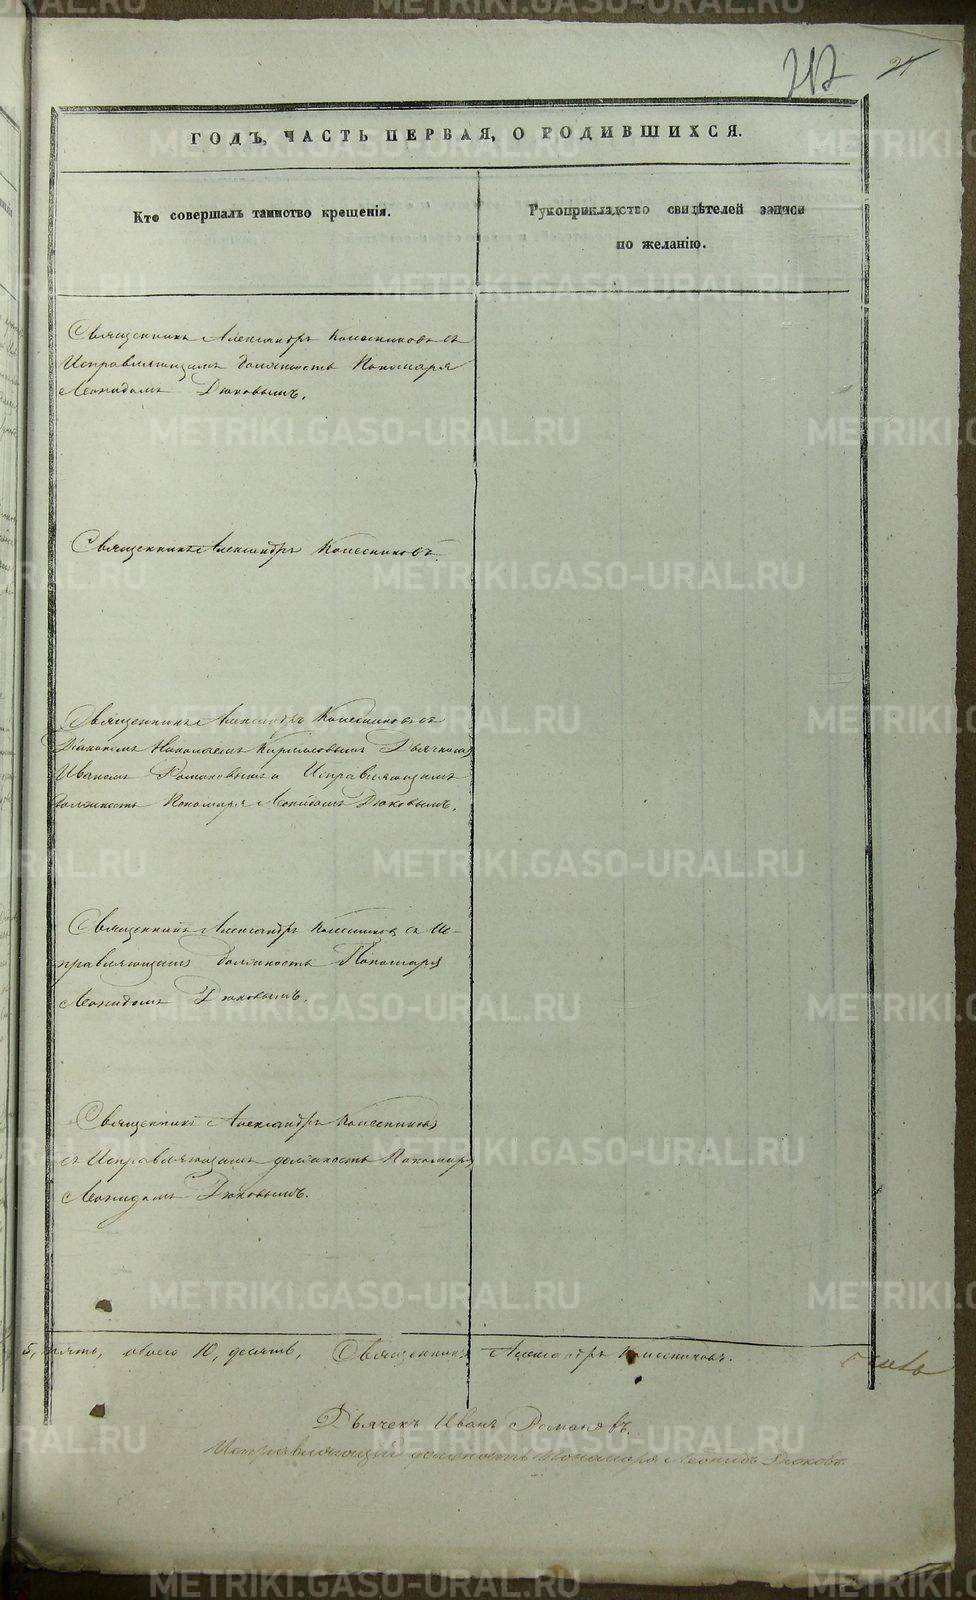 217
21
ГОДЪ, ЧАСТЬ ПЕРВАЯ, О РОДИВШИХСЯ.
Кто совершалъ таинство крещенія.
Рукоприкладство свидѣтелей записи
по желанію.
Священникъ Александръ Колесниковъ съ
Исправляющимъ должность Пономаря
Леонидомъ Дюковымъ.
Священникъ Александръ Колесниковъ.
Священникъ Александръ Колесниковъ съ
Діакономъ Николаемъ Кирилловымъ Дьячкомъ
Иваномъ Романовымъ и Исправляющимъ
должность Пономаря Леонидомъ Дюковымъ.
Священникъ Александръ Колесниковъ съ Ис-
правляющимъ должность Пономаря
Леонидомъ Дюковымъ.
Священникъ Александръ Колесниковъ
съ Исправляющимъ должность Пономаря
Леонидомъ Дюковымъ.
5, пять, обоего 10, десять, Священникъ Александръ Колесниковъ.
Дьячекъ Иванъ Романовъ.
Исправляющій должность Пономаря Леонидъ Дюковъ.
METRIKI.GASO-URAL.RU